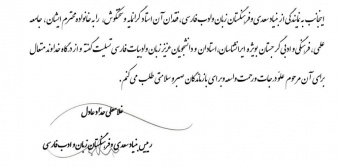 اینجانب به نمایندگی از بنیاد سعدی و فرهنگستان زبان و ادب فارسی، فقدان آن استاد گرانمایه و سختکوش، را به خانواده محترم ایشان، جامعه
علمی، فرهنگی و ادبی گرجستان بویژه ایرانشناسان، استادان و دانشجویان عزیز زبان و ادبیات فارسی تسلیت گفته و از درگاه خداوند متعال
برای آن مرحوم علو درجات و رحمت واسعه و برای بازماندگان صبر و سلامتی طلب می کنم.
غلامعلی حداد عادل
رییس بنیاد سعدی و فرهنگستان زبان و ادب فارسی